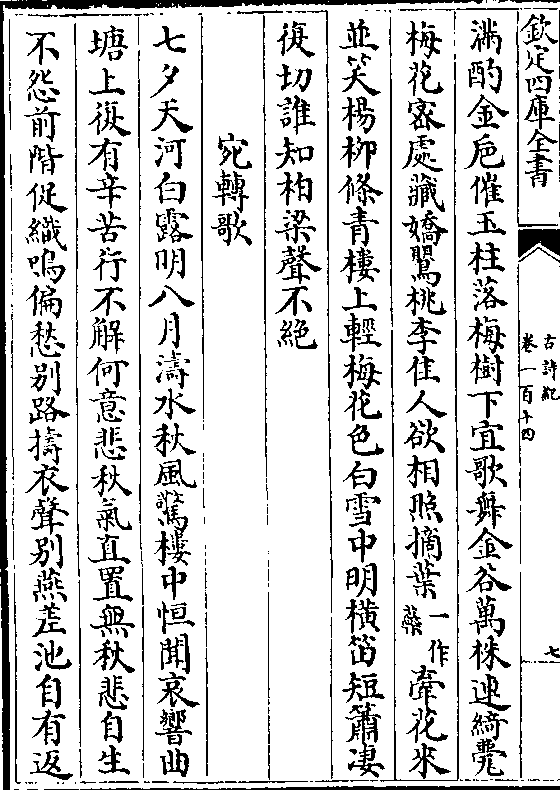 欽定四庫全書
古詩紀
卷一百十四
七
滿酌金巵催玉柱落梅樹下宜歌舞金谷萬株連綺甍
梅花密處藏嬌鸎桃李佳人欲相照摘葉一作蘂牽花來
並笑楊柳條青樓上輕梅花色白雪中明橫笛短簫淒
復切誰知柏梁聲不絶
宛轉歌
七夕天河白露明八月濤水秋風驚樓中恒聞哀響曲
塘上復有辛苦行不解何意悲秋氣直置無秋悲自生
不怨前階促織鳴偏愁别路擣衣聲别燕差池自有返